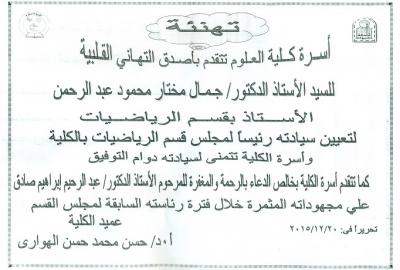 تهنئة
أسرة كلية العلوم تتقدم بأصدق التهاني القلبية
للسيد الأستاذ الدكتور/ جمال مختار محمود عبد الرحمن
الأستاذ بقسم الرياضيات
لتعيين سيادته رئيساً لمجلس قسم الرياضيات بالكلية
وأسرة الكلية تتمنى لسيادته دوام التوفيق
كما تتقدم أسرة الكلية بخالص الدعاء بالرحمة والمغفرة للمرحوم الأستاذ الدكتور/ عبد الرحيم إبراهيم صادق
علي مجهوداته المثمرة خلال فترة رئاسته السابقة لمجلس القسم
عميد الكلية
تحريرا في: ٢٠١٥/١٢/٢٠
أ.د/ حسن محمد حسن الهوارى